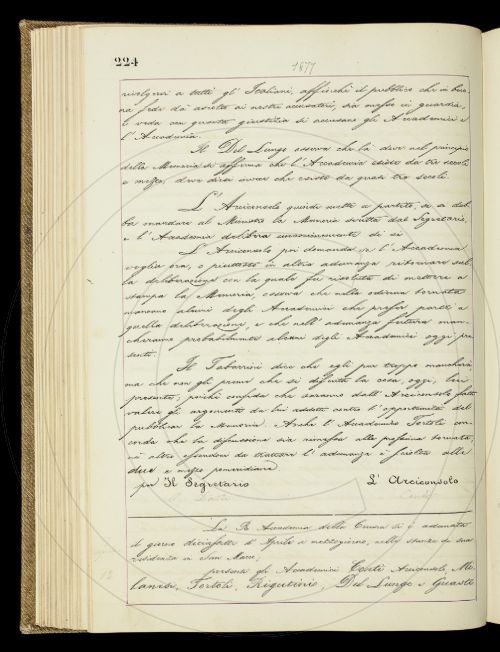 224
1877
rivolgersi a tutti gl' Italiani, affinchè il pubblico che in buo-
na fede dà ascolto ai nostri accusatori, sia messo in guardia,
e veda con quanta giustizia si accusano gli Accademici e
l'Accademia.
Il Del Lungo osserva che là dove nel principio
della Memoria si afferma che l'Accademia esiste da tre secoli
e mezzo, deve dirsi invece che esiste da quasi tre secoli.
L'Arciconsolo quindi mette a partito, se si deb-
ba mandare al Ministro la Memoria scritta dal Segretario,
e l'Accademia delibera unanimemente di sì.
L'Arciconsolo poi domanda, se l'Accademia
voglia ora, o piuttosto in altra adunanza ritornare sul-
la deliberazione con la quale fu risoluto di mettere a
stampa la Memoria, osserva che nella odierna tornata
mancano alcuni degli Accademici che presero parte a
quella deliberazione, e che nell'adunanza futura man-
cheranno probabilmente alcuni degli Accademici oggi pre-
senti.
Il Tabarrini dice che egli pur troppo mancherà
ma che non gli preme che si discuta la cosa, oggi, lui
presente, poichè confida che saranno dall'Arciconsolo fatti
valere gli argomenti da lui addotti contro l'opportunità del
pubblicar la Memoria. Anche l'Accademico Tortoli con-
corda che la discussione sia rimessa alla prossima tornata,
nè altro essendovi da trattare l'adunanza è sciolta alle
due e mezzo pomeridiane.
per Il Segretario L'Arciconsolo
Conti
La R. Accademia della Crusca si è adunata
il giorno diciassette d'Aprile a mezzogiorno, nelle stanze di sua
residenza in San Marco,
presenti gli Accademici Conti Arciconsolo, Mi-
lanesi, Tortoli, Rigutini, Del Lungo e Guasti